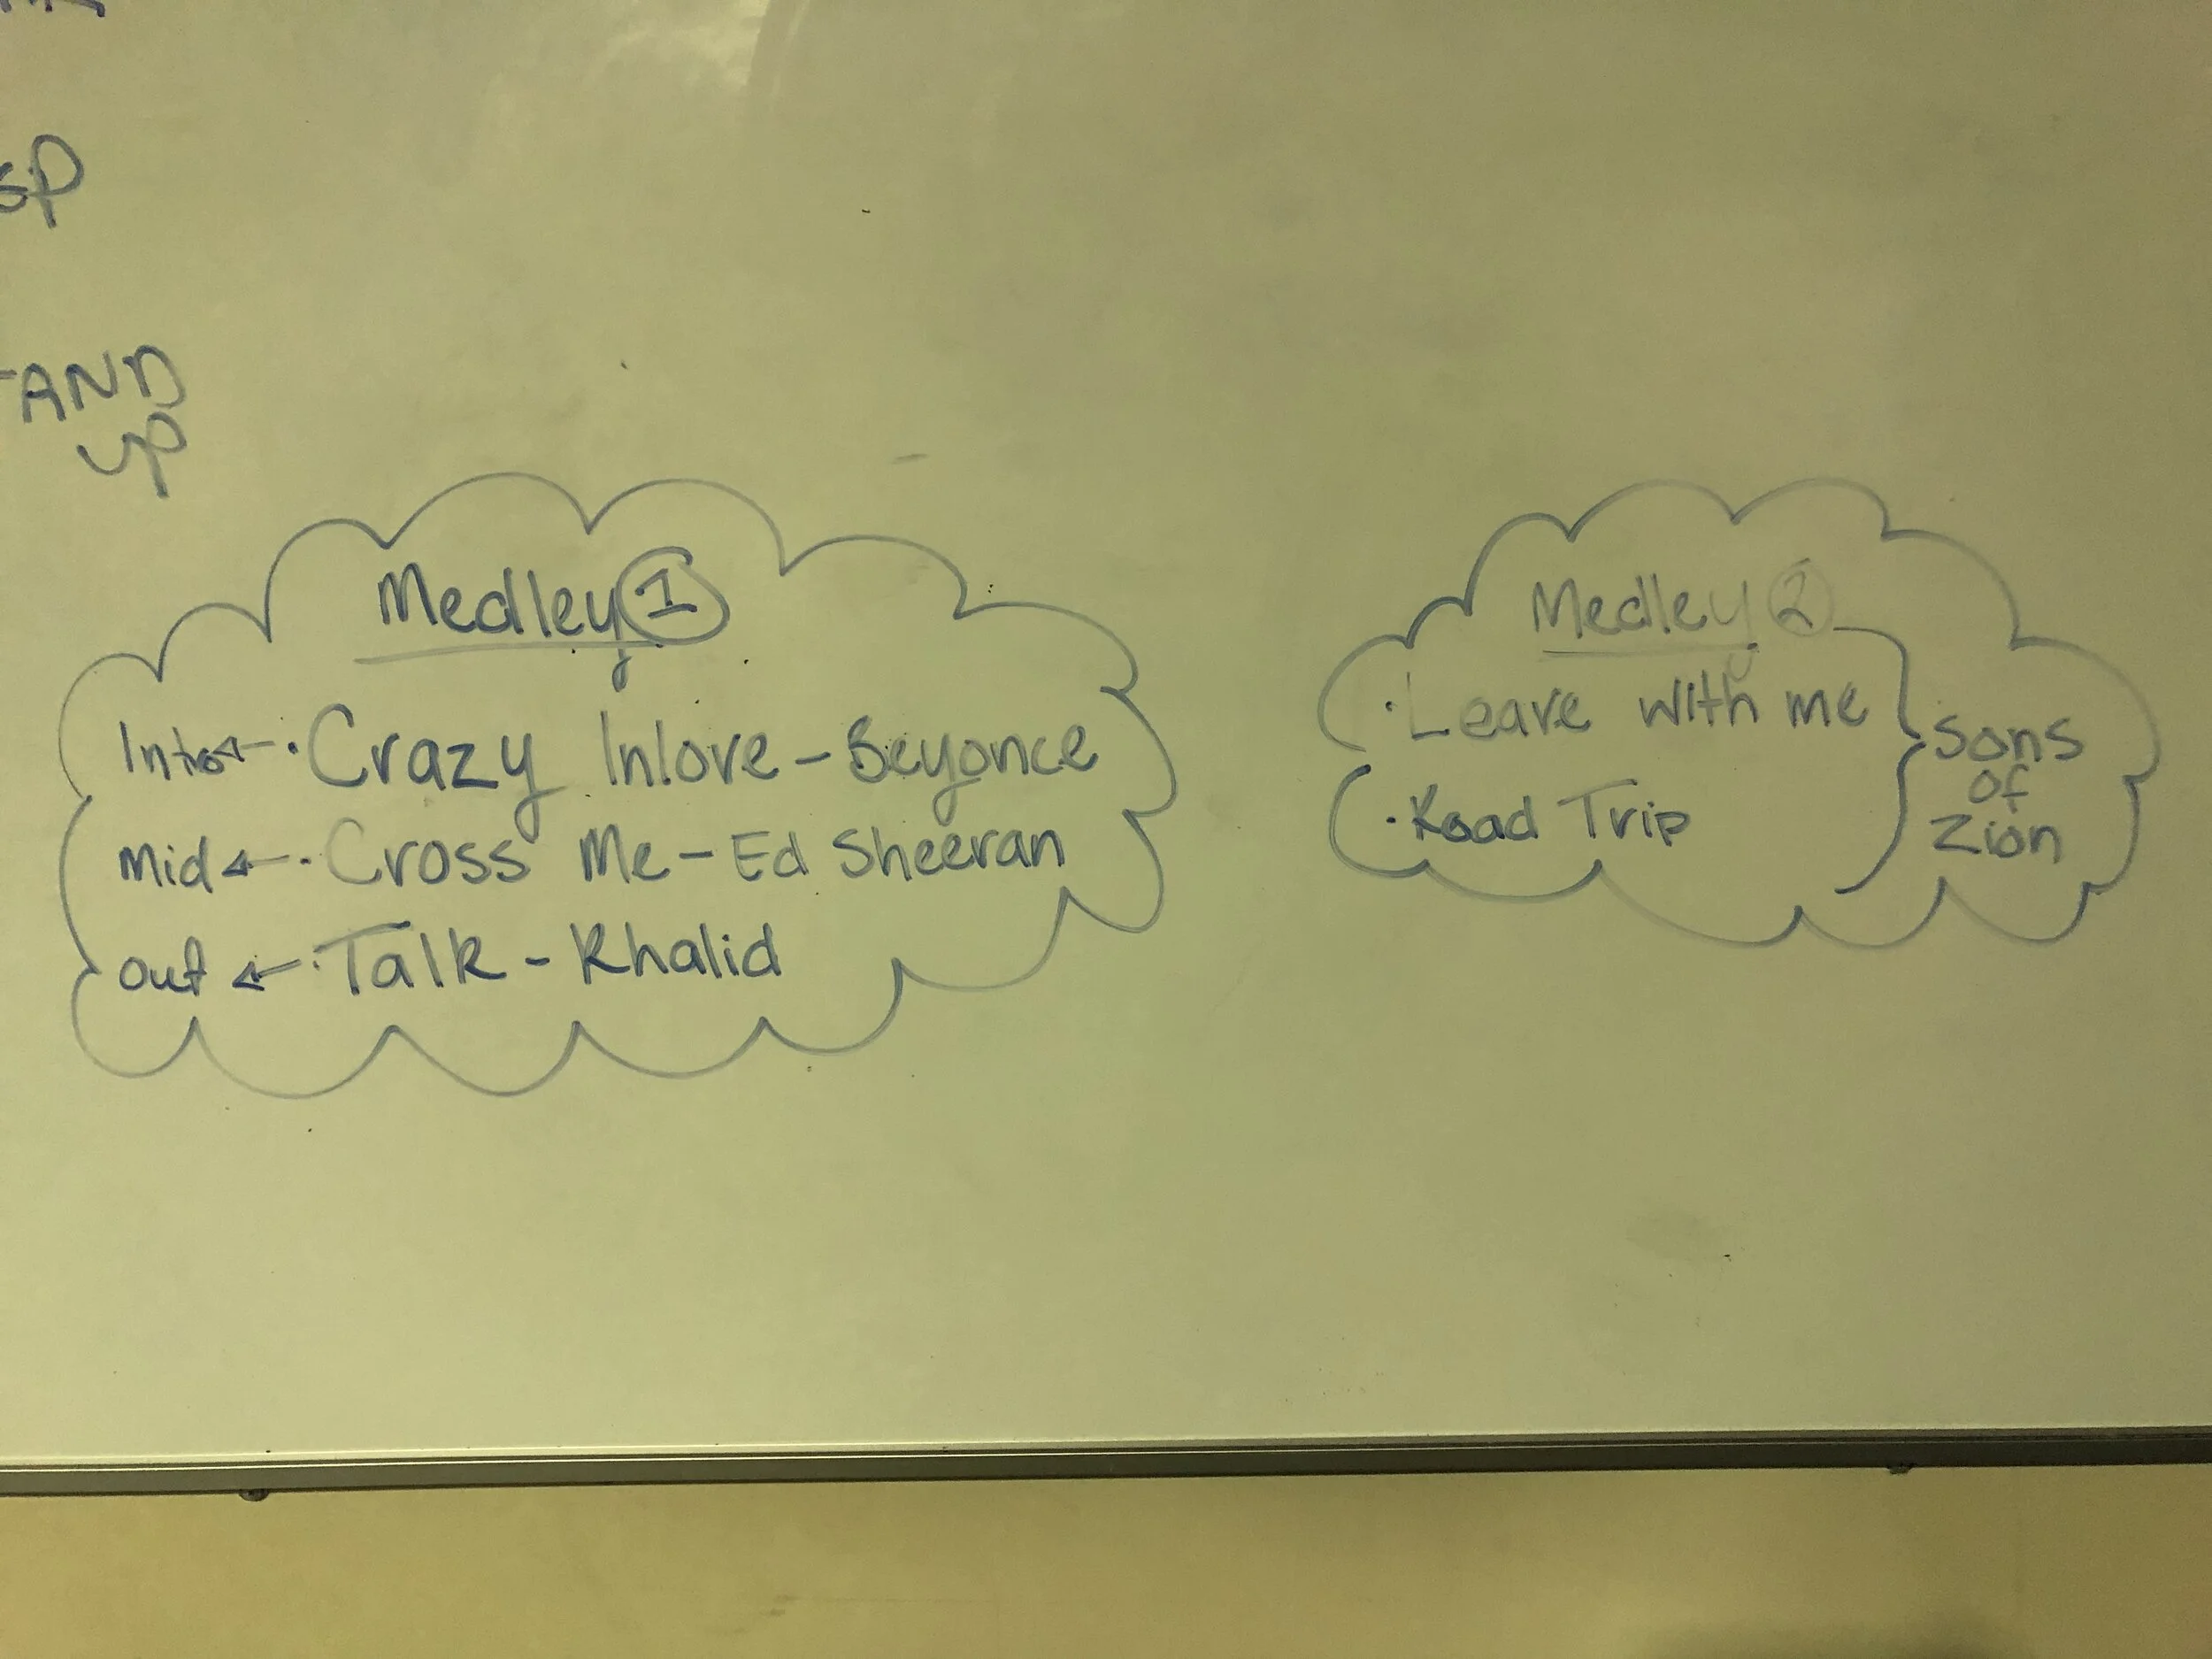 SP
AND
UP
Medley 1
Intro ← · Crazy Inlove - Beyonce
Mid ← · Cross Me - Ed Sheeran
Out ← · Talk - Khalid
Medley 2
· Leave with me
· Road Trip
Sons
of
Zion